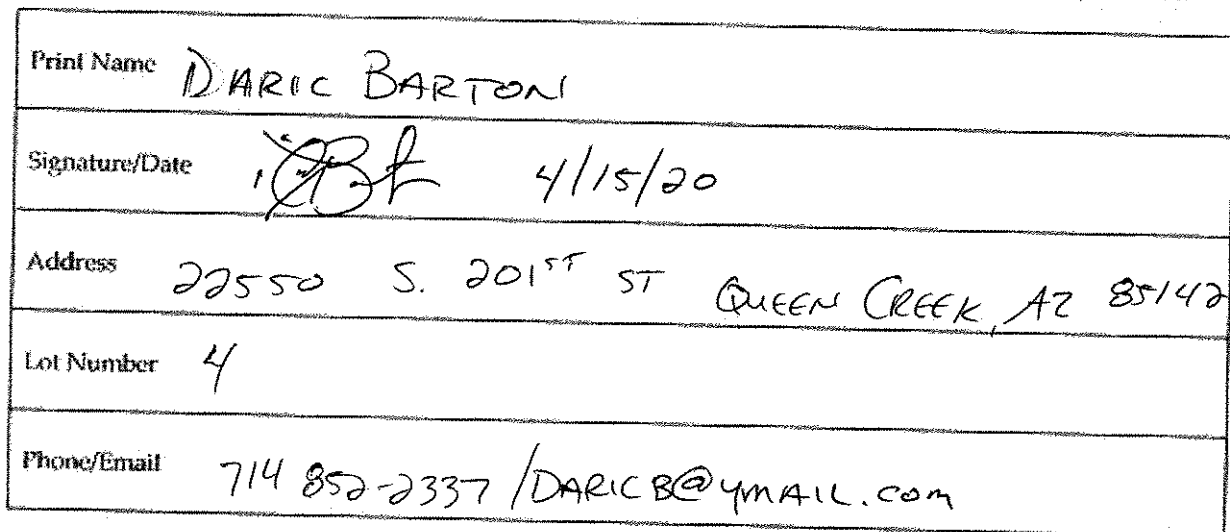 Print Name DARIC BARTON
Signature/Date 4/15/20
Address 22550 S. 201ST ST QUEEN CREEK, AZ 85142
Lot Number 4
Phone/Email 714 852-2337 /DARICB@YMAIL.COM